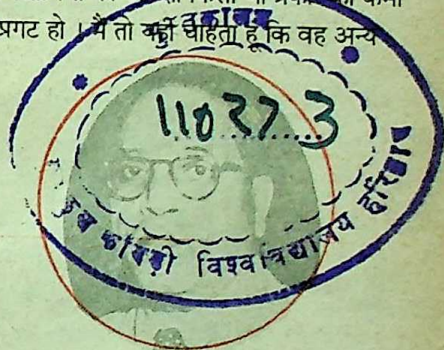 प्रगट हो । मैं तो नहीं चाहता हूं कि वह अन्य
पुस्तकालय
110273
गुरुकुल काँगड़ी विश्वविद्यालय हरिद्वार